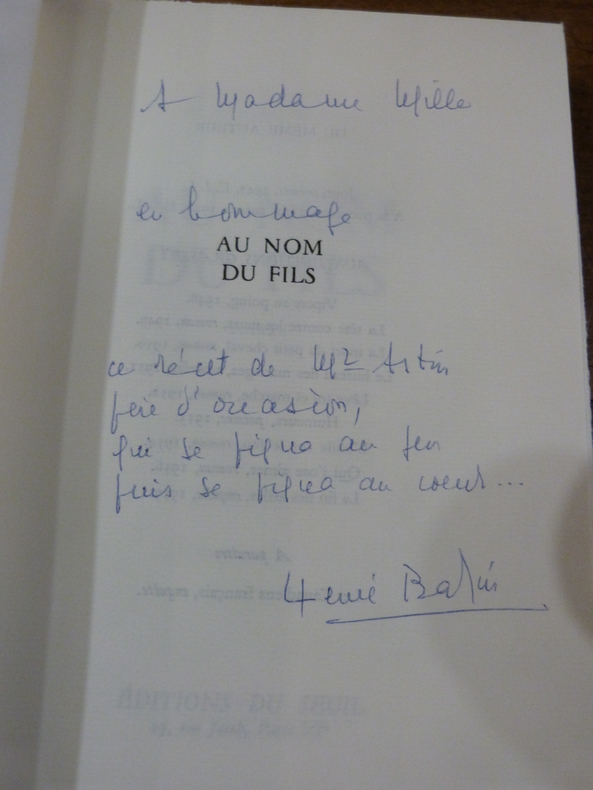 A Madame Mille
en hommage
AU NOM
DU FILS
ce récit de Mr Astin
père d'occasion,
qui se piqua au jeu
puis se piqua au coeur...
Hervé Bazin